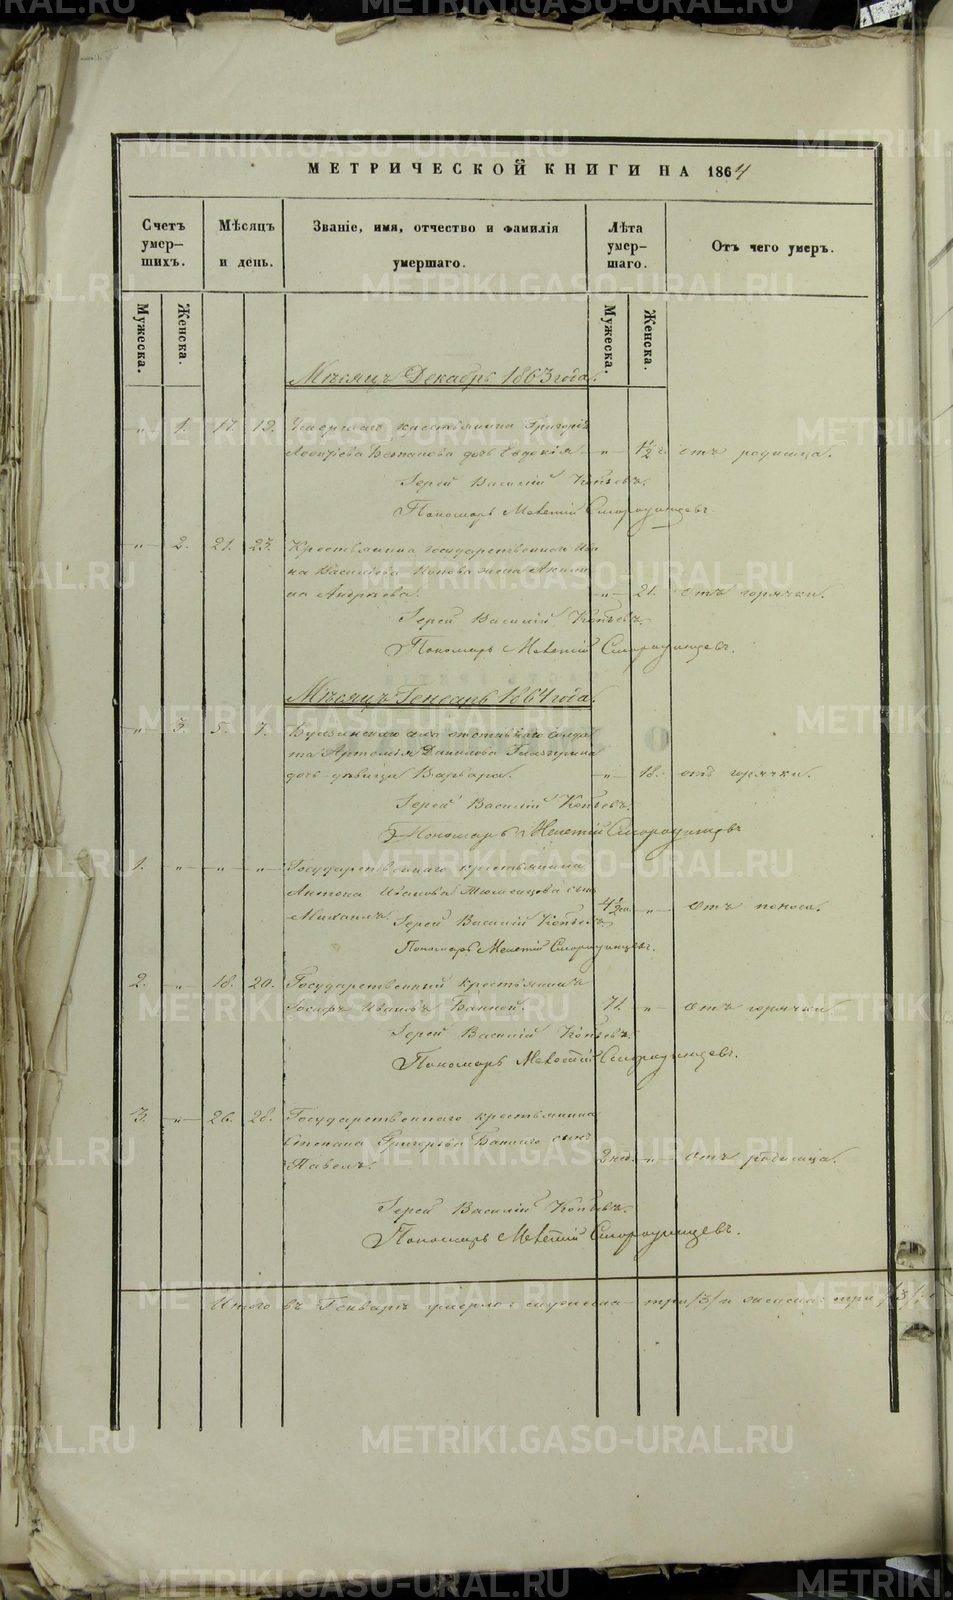 МЕТРИЧЕСКОЙ КНИГИ НА 1864
Счетъ умер-шихъ.
Мѣсяцъ и день.
Званіе, имя, отчество и фамилія умершаго.
Лѣта умер-шаго.
Отъ чего умеръ.
Мужеска.
Женска.
Мужеска.
Женска.
Мѣсяцъ Декабрь 1863 года.
" 1. 17. 19. Умершаго крестьянина Григорія
дочь Евдокія " 1½ отъ родимца.
Іерей Василій Копьевъ.
Пономарь Мелетій Смородинцевъ.
" 2. 21. 23. Крестьянина государственнаго
на Васильева Попова жена Акили-
на Андреева. " 21. отъ горячки.
Іерей Василій Копьевъ.
Пономарь Мелетій Смородинцевъ.
Мѣсяцъ Генварь 1864 года.
" 3. 5. 7. отставнаго солда-
та Артемія Данилова
дочь девица Варвара. " 18. отъ горячки.
Іерей Василій Копьевъ.
Пономарь Мелетій Смородинцевъ
1. " " " Государственнаго крестьянина
Антона Иванова сынъ
Михаилъ. 4½ " Отъ поноса.
Іерей Василій Копьевъ.
Пономарь Мелетій Смородинцевъ.
2. " 18. 20. Государственный крестьянинъ
Іосифъ Ивановъ Банной. 71. " Отъ горячки
Іерей Василій Копьевъ.
Пономарь Мелетій Смородинцевъ.
3. " 26. 28. Государственнаго крестьянина
Степана Григорьева Баннаго сынъ
Павелъ. 2 нед. " Отъ родимца.
Іерей Василій Копьевъ.
Пономарь Мелетій Смородинцевъ.
Итого въ Генварѣ умерло: мужеска три /3/ и женска три /3/.
METRIKI.GASO-URAL.RU